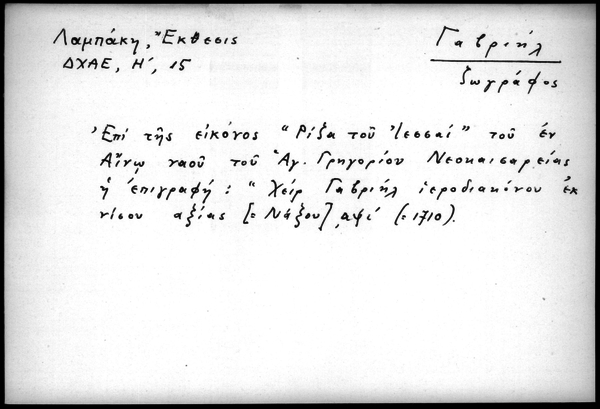 Λαμπάκη, Ἔκθεσις
ΔΧΑΕ, Η', 15
Γαβριήλ
ζωγράφος
Ἐπὶ τῆς εἰκόνος "Ρίζα τοῦ Ἰεσσαί" τοῦ ἐν
Αἴνῳ ναοῦ τοῦ Ἁγ. Γρηγορίου Νεοκαισαρείας
ἡ ἐπιγραφή: "Χείρ Γαβριήλ ἱεροδιακόνου ἐκ
νίσου αξίας [= Νάξου] ͵αψί (= 1710).